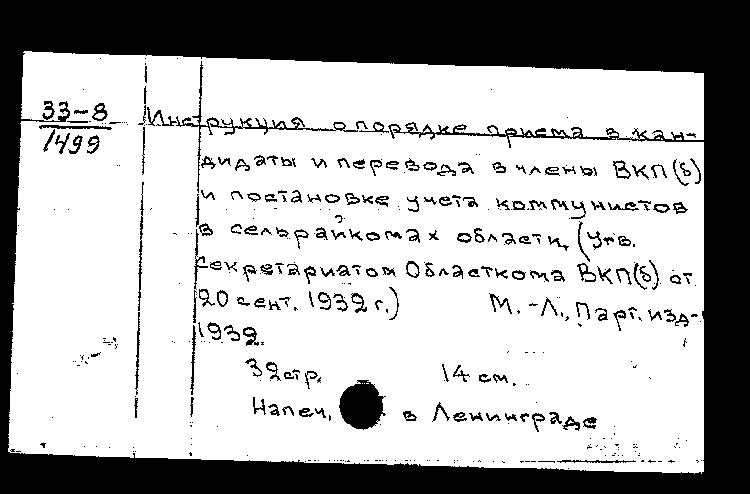 33-8
1499
Инструкция о порядке приема в кан-
дидаты и перевода в члены ВКП(б)
и постановке учета коммунистов
в сельрайкомах области, (Утв.
секретариатом Областкома ВКП(б) от
20 сент. 1932 г.) М.-Л., Парт. изд-
1932.
32 стр. 14 см.
Напеч. в Ленинграде